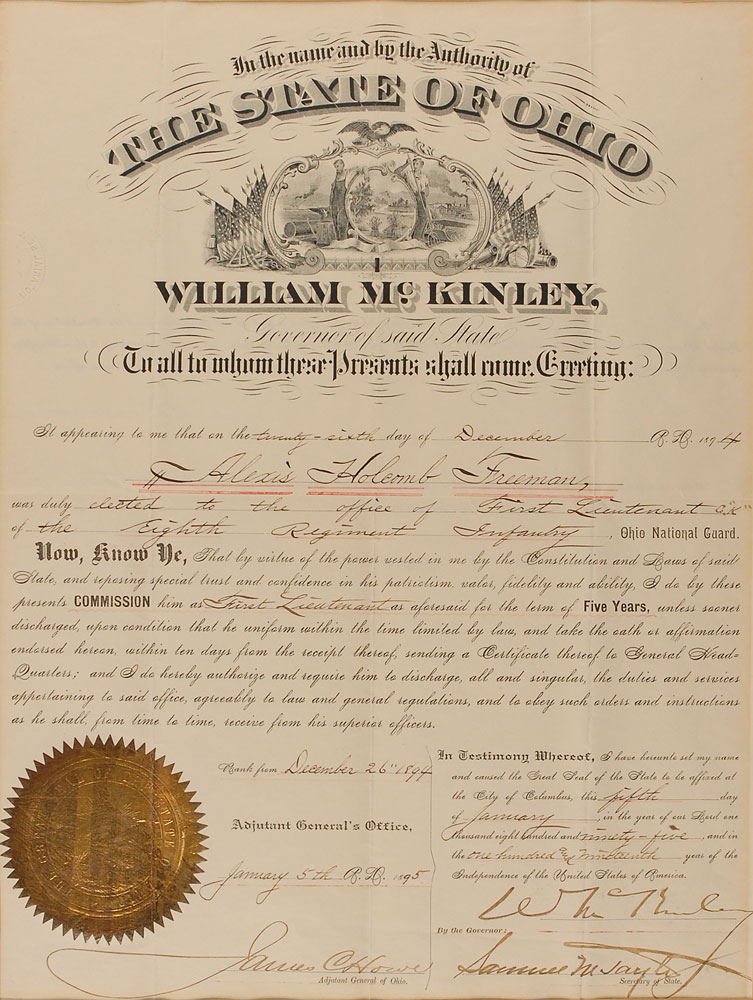 In the name and by the Authority of
THE STATE OF OHIO
WILLIAM McKINLEY,
Governor of said State
To all to whom these Presents shall come, Greeting:
It appearing to me that on the twenty-sixth day of December A.D. 1894
Alexis Holcomb Freeman,
was duly elected to the office of First Lieutenant Co. "K"
of the Eighth Regiment Infantry, Ohio National Guard.
Now, Know Ye, That by virtue of the power vested in me by the Constitution and Laws of said
State, and reposing special trust and confidence in his patriotism, valor, fidelity and ability, I do by these
presents COMMISSION him as First Lieutenant as aforesaid for the term of Five Years, unless sooner
discharged, upon condition that he uniform within the time limited by law, and take the oath or affirmation
endorsed hereon, within ten days from the receipt thereof, sending a Certificate thereof to General Head-
Quarters; and I do hereby authorize and require him to discharge, all and singular, the duties and services
appertaining to said office, agreeably to law and general regulations, and to obey such orders and instructions
as he shall, from time to time, receive from his superior officers.
Rank from December 26" 1894
Adjutant General's Office,
January 5th A.D. 1895.
James C Howe
Adjutant General of Ohio.
In Testimony Whereof, I have hereunto set my name
and caused the Great Seal of the State to be affixed at
the City of Columbus, this fifth day
of January, in the year of our Lord one
thousand eight hundred and ninety-five, and in
the one hundred & nineteenth year of the
Independence of the United States of America.
Wm McKinley
By the Governor:
Samuel M Taylor
Secretary of State.